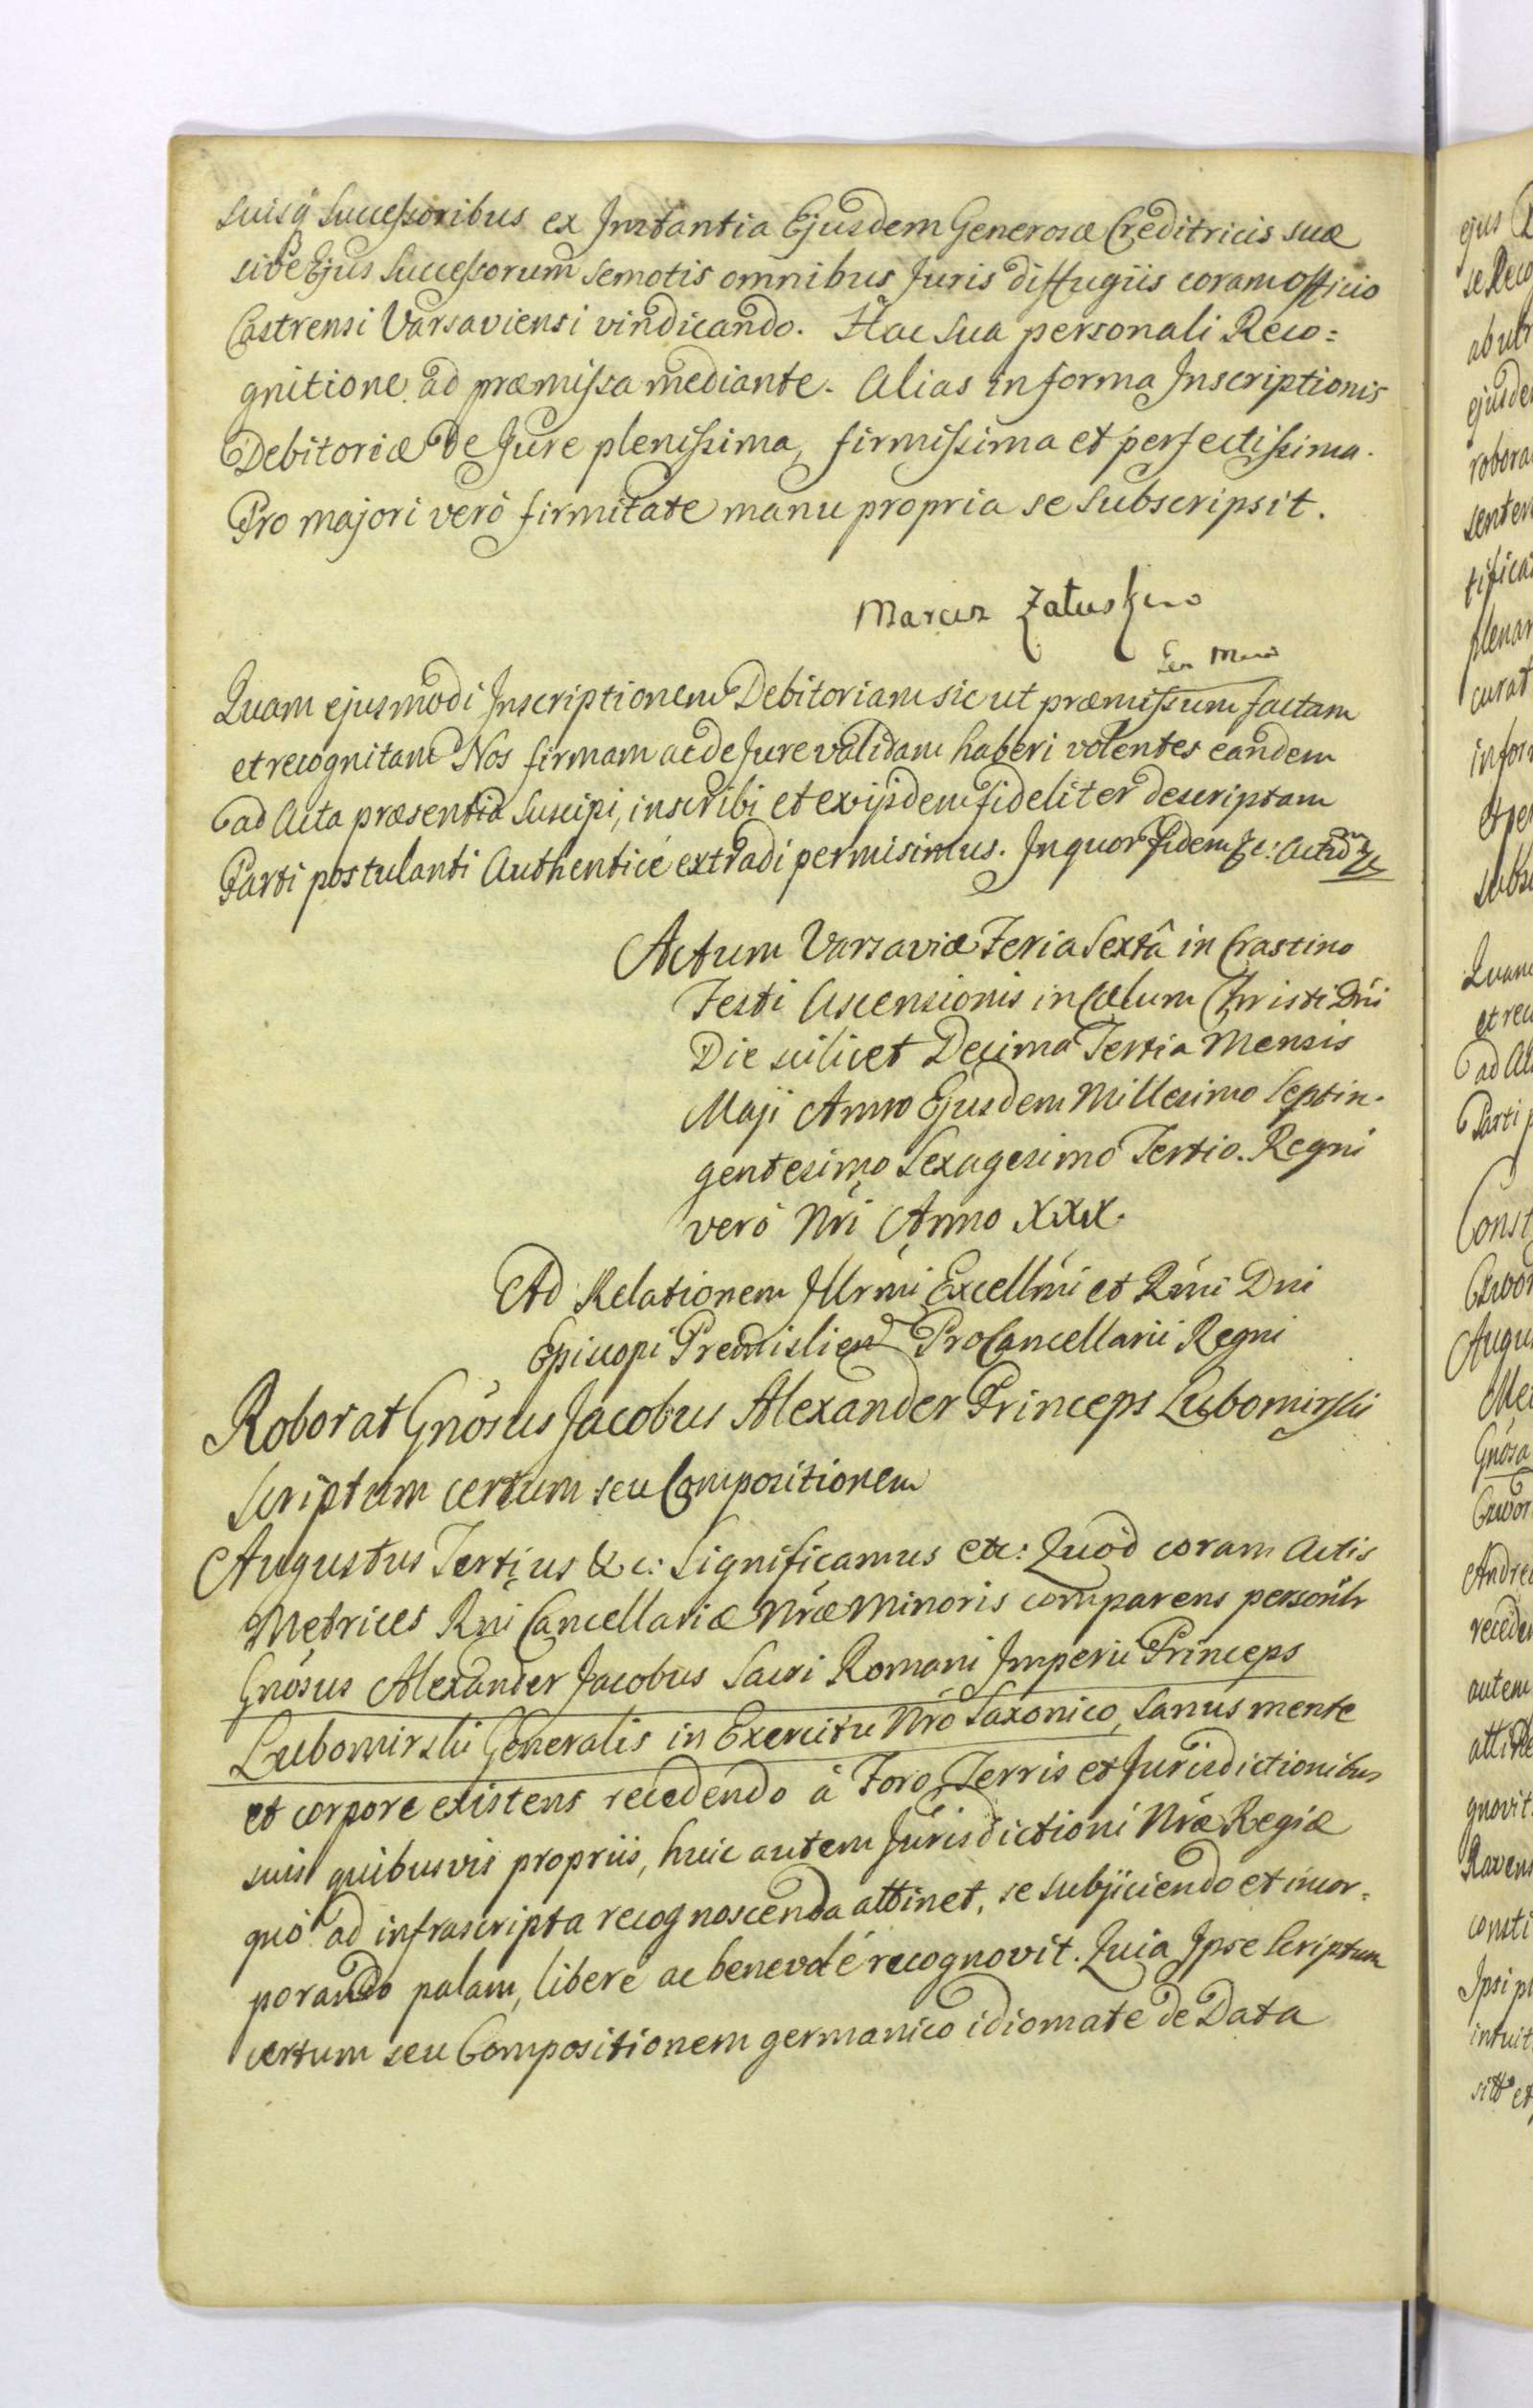 suisq Successoribus ex Instantia Ejusdem Generosæ Creditricis suæ
sive Ejus Successorum semotis omnibus Juris diffugiis coram Officio
Castrensi Varsaviensi vindicando. Hac sua personali Reco=
gnitione ad præmissa mediante. Alias in forma Inscriptionis
Debitoriæ de Jure plenissima, firmissima et perfectissima.
Pro majori verò firmitate manu propria se subscripsit.
Marcin Załuski
Quam ejusmodi Inscriptionem Debitoriam sic ut præmissum factam
et recognitam Nos firmam ac de Jure validam haberi volentes eandem
ad Acta præsentia suscipi, inscribi et ex ijsdem fideliter descriptam
Parti postulanti Authenticè extradi permisimus. In quor fidem &c: Actũ
Actum Varsaviæ Feria Sextâ in Crastino
Festi Ascensionis in Cælum Christi Dni
Die scilicet Decima Tertia Mensis
Maji Anno Ejusdem Millesimo Septin=
gentesimo Sexagesimo Tertio. Regni
verò Nri Anno XXX.
Ad Relationem Illrmi Excellmi et Rmi Dni
Episcopi Premislien ProCancellarii Regni
Roborat Gnosus Jacobus Alexander Princeps Lubomirski
Scriptum certum seu Compositionem
Augustus Tertius &c: Significamus etc: Quòd coram Actis
Metrices Rni Cancellariæ Nræ Minoris comparens personlr
Gnosus Alexander Jacobus Sacri Romani Imperii Princeps
Lubomirski Generalis in Exercitu Nrõ Saxonico, sanus mente
et corpore existens recedendo à Foro, Terris et Jurisdictionibus
suis quibusvis propriis, huic autem Jurisdictioni Nræ Regiæ
quò ad infrascripta recognoscenda attinet, se subjiciendo et incor=
porando palam, liberè ac benevolè recognovit. Quia Ipse Scriptum
certum seu Compositionem germanico idiomate de Data